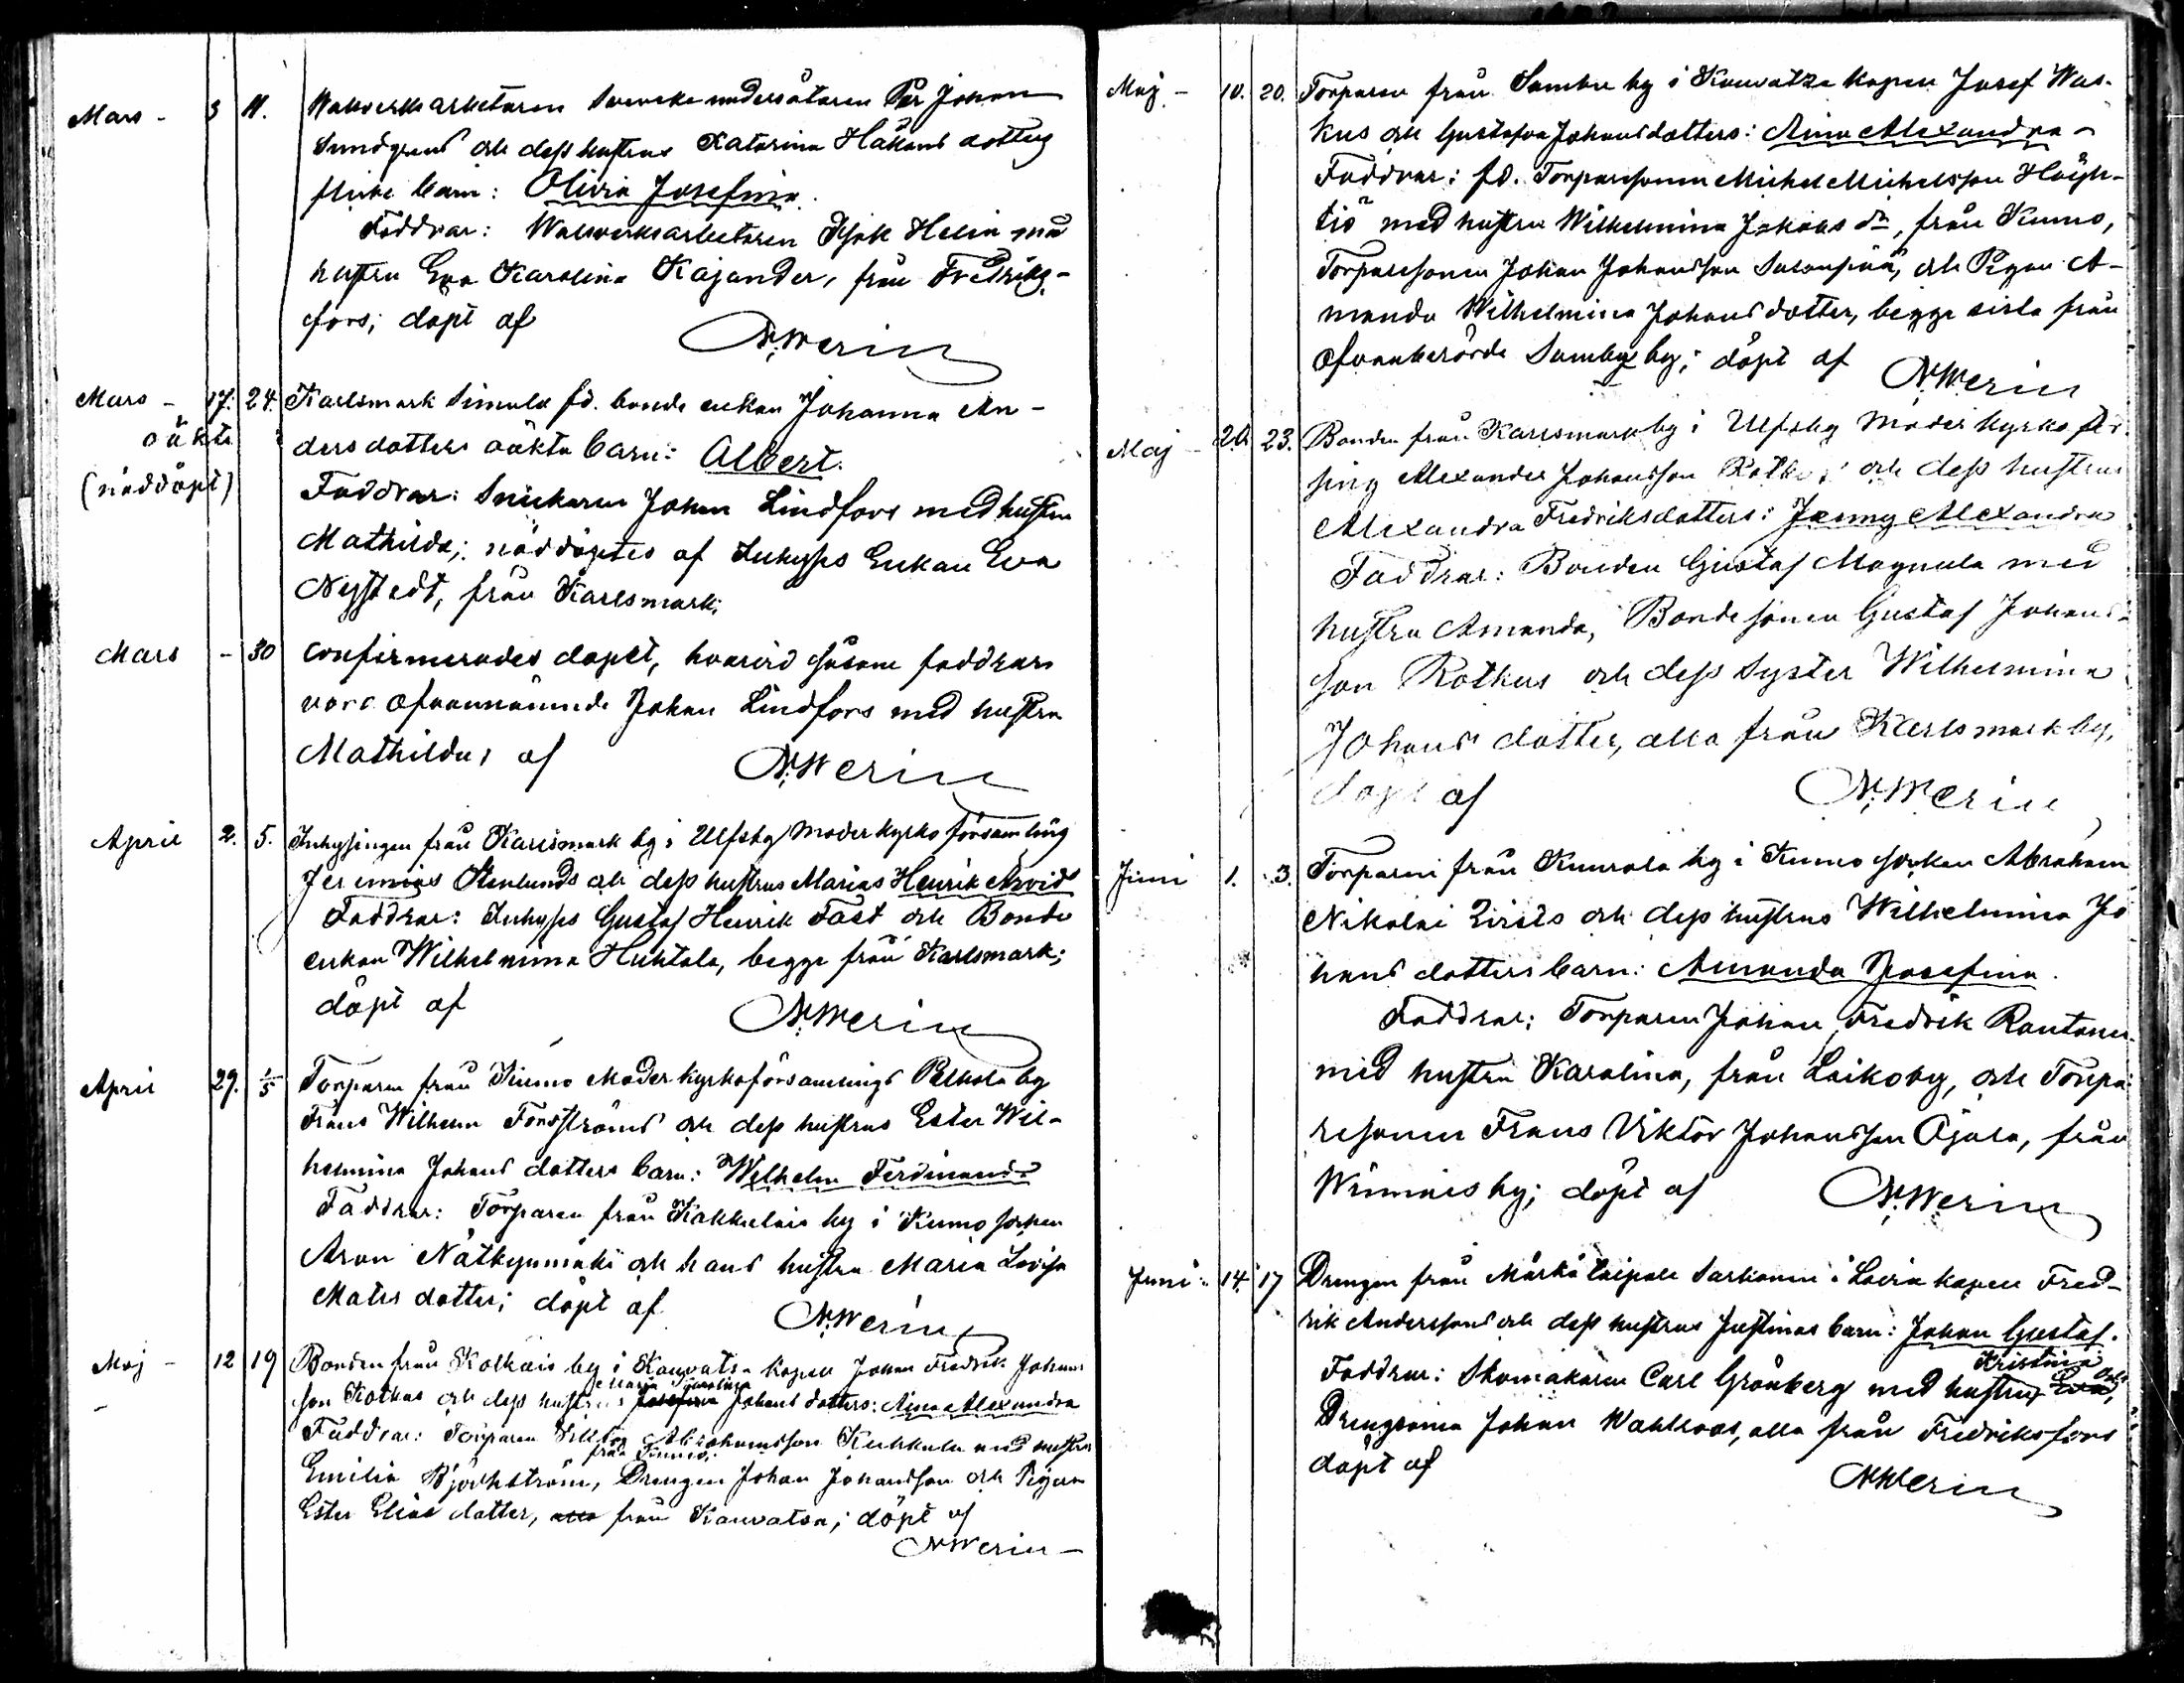 Mars - 3 11. Walsverksarbetaren Svenske undersåtaren Per Johan
Sundgrens och dess hustrus Katarina Håkans dotters
flicke barn: Olivia Josefina.
Faddrar: Walsverksarbetaren Isak Helin med
hustru Eva Karolina Kajander, från Fredriks-
fors; döpt af
N. Werin
Mars - 17. 24. Karlsmark Simula fd. bonde enkan Johanna An-
oäkta dersdotters oäkta barn: Albert.
(nöddöpt) Faddrar: Snickaren Johan Lindfors med hustru
Mathilda; nöddöptes af Inhyses Enkan Eva
Nystedt, från Karlsmark;
Mars - 30 confirmerades dopet, hvarvid såsom faddrar
voro ofvannämnde Johan Lindfors med hustru
Mathilda, af
N. Werin
April 2. 5. Inhysingen från Karlsmark by i Ulfsby Moderkyrko församling
Jeremias Stenlunds och dess hustrus Marias Henrik Arvid
Faddrar: Inhyses Gustaf Henrik Fast och Bonde
enkan Wilhelmina Huhtala, begge från Karlsmark;
döpt af
N. Werin
April 29. 1/5 Torparen från Kumo Moderkyrkoförsamlings Pelkola by
Frans Wilhelm Forsströms och dess hustrus Ester Wil-
helmina Johans dotters barn: Wilhelm Ferdinand
Faddrar: Torparen från Kakkulais by i Kumo socken
Aron Nätkynmäki och hans hustru Maria Lovisa
Mats dotter; döpt af
N. Werin
Maj - 12 19 Bonden från Kolkais by i Kauvatsa kapell Johan Fredrik Johans
Maria Karolina
son Kotkas och dess hustrus Josefina Johans dotters: Aina Alexandra
Faddrar: Torparen Viktor Abrahamsson Kuhkula med hustru
från Kumo,
Emilia Björkström, Drengen Johan Johansson och Pigan
Ester Elias dotter, alla från Kauvatsa; döpt af
N. Werin -
Maj - 10. 20. Torparen från Sambu by i Kauvatsa kapell Josef Wus-
kus och Gustafva Johansdotters: Aina Alexandra -
Faddrar: fd. Torparesonen Michel Michelsson Höyh-
tiö med hustru Wilhelmina Jakobs dr, från Kumo,
Torparesonen Johan Johansson Salonpää, och Pigan A-
manda Wilhelmina Johans dotter, begge sista från
ofvanberörde Sambu by; döpt af
N. Werin
Maj - 20. 23. Bonden från Karlsmark by i Ulfsby Moder kyrko för-
sing Alexander Johansson och dess hustrus
Alexandra Fredriksdotters: Jenny Alexandra
Faddrar: Bonden Gustaf Magnula med
hustru Amanda, Bondesonen Gustaf Johans-
son Rotkus och dess Syster Wilhelmina
Johans dotter, alla från Karlsmark by,
döpt af
N. Werin
Juni 1. 3. Torparen från Kuurola by i Kumo socken Abraham
Nikolai och dess hustrus Wilhelmina Jo
hans dotters barn: Amanda Josefina.
Faddrar: Torparen Johan Fredrik Rantanen
med hustru Karolina, från Laikoby, och Torpa
resonen Frans Viktor Johansson Ojala, från
Wimnais by; döpt af
N. Werin
Juni 14. 17 Drengen från Märkä taipale Sarkanen i Lavia kapell Fred-
rik Anderssons och dess hustrus Justinas barn: Johan Gustaf.
Kristina och
Faddrar: Skomakaren Carl Grönberg med hustru Eva,
Drengsonen Johan Wahlroos, alla från Fredriksfors
döpt af
N. Werin